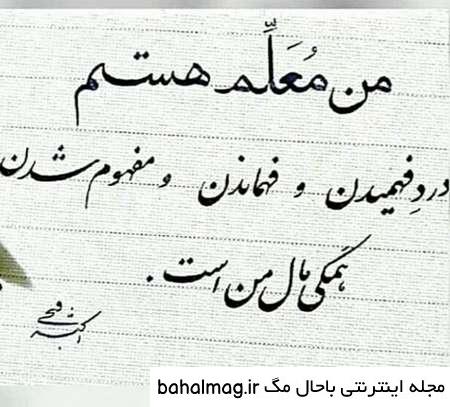 من مُعَلِّم هستم
دردِ فهمیدن و فهماندن و مفهوم شدن
همگی مال من است.
مجله اینترنتی باحال مگ bahalmag.ir